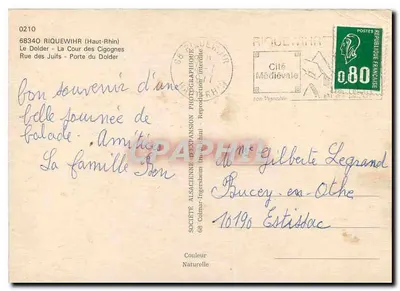 0210
68340 RIQUEWIHR (Haut-Rhin)
Le Dolder - La Cour des Cigognes
Rue des Juifs - Porte du Dolder
Bon souvenir d'une
belle journée de
balade. Amitiés
La famille Bon
SOCIÉTÉ ALSACIENNE D'EXPANSION PHOTOGRAPHIQUE
68 Colmar-Ingersheim Reproduction interdite
Couleur
Naturelle
68 RIQUEWIHR
RIQUEWIHR
Cité
Médiévale
POSTES
REPUBLIQUE FRANÇAISE
0,80
Mme Gilberte Legrand
Bucey-en-Othe
10190 Estissac